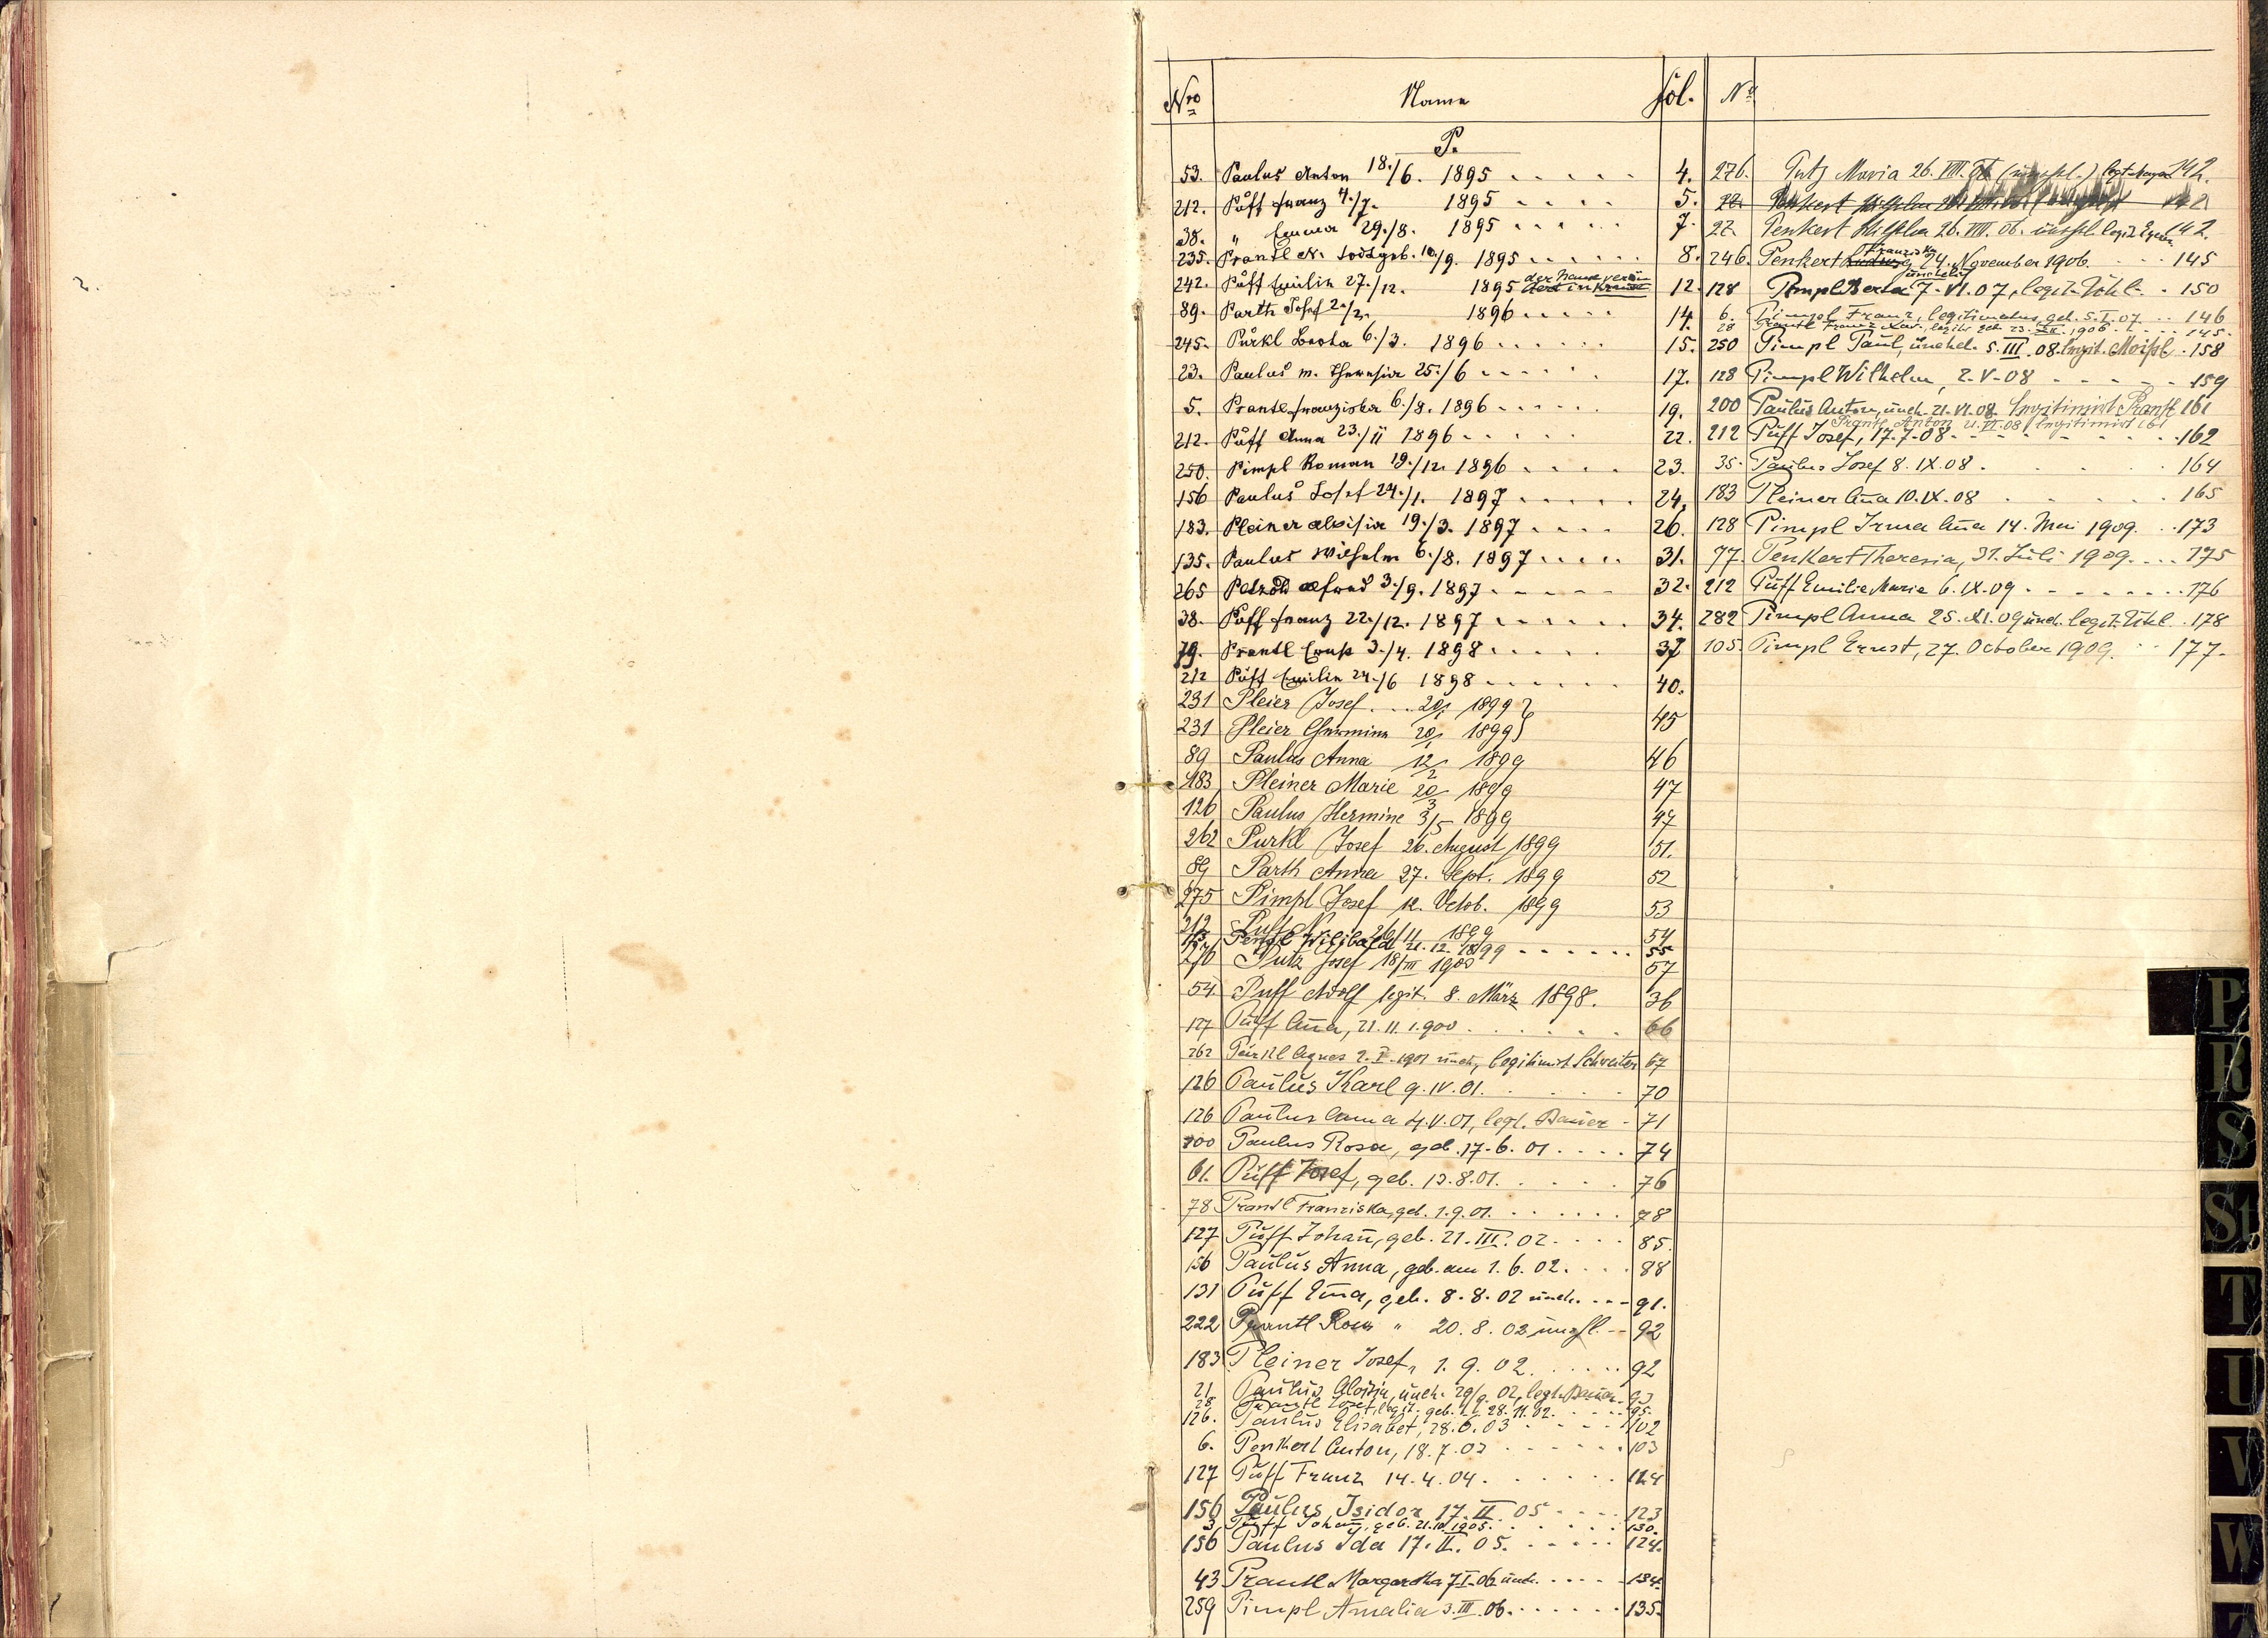 Nro Name fol. No
P.
53. Paulus Anton 18./6. 1895 4.
212. Puff Franz 4./7. 1895 5.
38. " Emma 29./8. 1895 7.
235. Prantl N. todtgeb. 10./9. 1895 8.
242. Puff Emilie 27./12. 1895 12.
89. Parth Josef 1896 14.
245. Purkl Berta 6./3. 1896 15.
23. Paulus m. Theresia 25./6 17.
5. Prantl Franziska 6./8. 1896 19.
212. Puff Anna 23./11 1896 22.
250. Pimpl Roman 19./12. 1896 23.
156 Paulus Josef 24./1. 1897 24.
183. Pleiner Aloisia 19./3. 1897 26.
135. Paulus Wilhelm 6./8. 1897 31.
265 Petzold Alfred 3./9. 1897 32.
38. Puff Franz 22./12. 1897 34.
79. Prantl Ernst 3./4. 1898 37
212 Puff Emilie 24./6 1898 40.
231 Pleier Josef 20/1 1899
231 Pleier Hermine 20/1 1899 45
89 Paulus Anna 12/2 1899 46
183 Pleiner Marie 20/3 1899 47
126 Paulus Hermine 3/5 1899 47
262 Purkl Josef 26. August 1899 51.
89 Parth Anna 27. Sept. 1899 52
275 Pimpl Josef 12. Octob. 1899 53
212 Puff N. 26/11 1899 54
Wilibald 21.12.1899 55
276 Putz Josef 18/III 1900 57
54 Puff Adolf legit. 8. März 1898. 36
127 Puff Aña, 21.11.1900 66
262 Pürkl Agnes 2.I.1901 uneh., legitimirt Schreiter 67
126 Paulus Karl 9.IV.01. 70
126 Paulus Anna 4.V.01, legt. Bauer 71
200 Paulus Rosa, geb. 17.6.01 74
61. Puff Josef, geb. 13.8.01. 76
78 Prantl Franziska, geb. 1.9.01. 78
127 Puff Johañ, geb. 21.III.02 85.
156 Paulus Anna, geb. am 1.6.02. 88
131 Puff Em̃a, geb. 8.8.02 uneh. 91.
222 Prantl Rosa " 20.8.02 unehl. 92
183 Pleiner Josef, 1.9.02. 92
21 Paulus Aloisia, uneh. 29/9.02, legt. Bauer 93
28 Prantl Josef, legit. geb. 28.11.02. 95.
126. Paulus Elisabet, 28.6.03 102
6. Penkert Anton, 18.7.03 103
127 Puff Franz 14.4.04. 114
156 Paulus Isidor 17.II.05 123
3. Puff Johañ, geb. 21.10.1905. 130.
156 Paulus Ida 17.II.05. 124.
43 Prantl Margaretha 7.I.06 uneh. 134.
259 Pimpl Amalia 3.III.06. 135.
276. Putz Maria 26.VIII.06 (unehl.) 142.
22. Penkert Wilhelm
22 Penkert Wilhelm 26.VIII.06. unehl. legit. 142.
246. Penkert Franziska 24. November 1906. 145
128 Pimpl Berta unehelich 7.VI.07, legit. Uhl 150
6. Pimpl Franz, legitimatus, geb. 5.I.07 146
28 Prantl Franz Xav., legit. geb. 23.XII.1906. 145.
250 Pimpl Paul, unehel. 5.III.08. legit. Moissl 158
128 Pimpl Wilhelm, 2.V.08 159
200 Paulus Anton, uneh. 21.VI.08 legitimirt Prantl 161
Prantl Anton 21.VI.08 legitimirt 161
212 Puff Josef, 17.7.08 162
35. Paulus Josef 8.IX.08. 164
183 Pleiner Aña 10.IX.08 165
128 Pimpl Irma Aña 14. Mai 1909. 173
77. Penkert Theresia, 31. Juli 1909. 175
212 Puff Emilie Marie 6.IX.09 176
282 Pimpl Anna 25.XI.09 uneh. legit. Uhl. 178
105. Pimpl Ernst, 27. October 1909. 177.
P
R
S
St
T
U
V
W